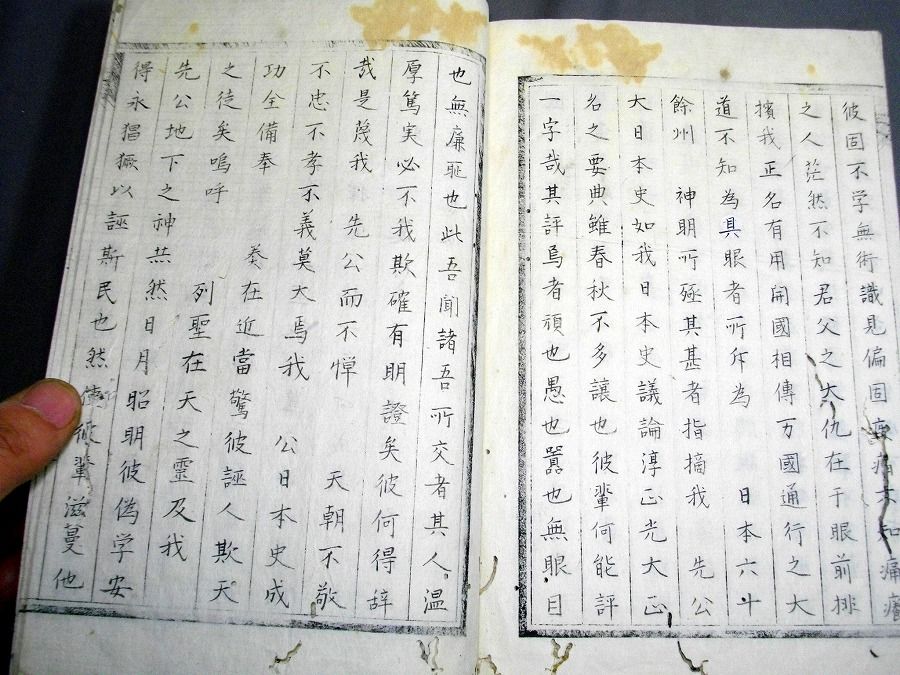 彼固不学無術識見偏固疲痛不知痛癢
之人茫然不知君父之大仇在于眼前排
擯我正名有用開國相傳万國通行之大
道不知為具眼者所斥為 日本六十
餘州 神明所殛其甚者指摘我 先公
大日本史如我日本史議論淳正光大正
名之要典雖春秋不多讓也彼輩何能評
一字哉其評焉者頑也愚也嚚也無眼目
也無廉耻也此吾聞諸吾所交者其人温
厚篤実必不我欺確有明證矣彼何得辞
哉是蔑我 先公而不憚 天朝不敬
不忠不孝不義莫大焉我 公日本史成
功全備奉 奏在近當驚彼誣人欺天
之徒矣嗚呼 列聖在天之靈及我
先公地下之神共然日月昭明彼偽学安
得永猖獗以誣斯民也然彼輩滋蔓他